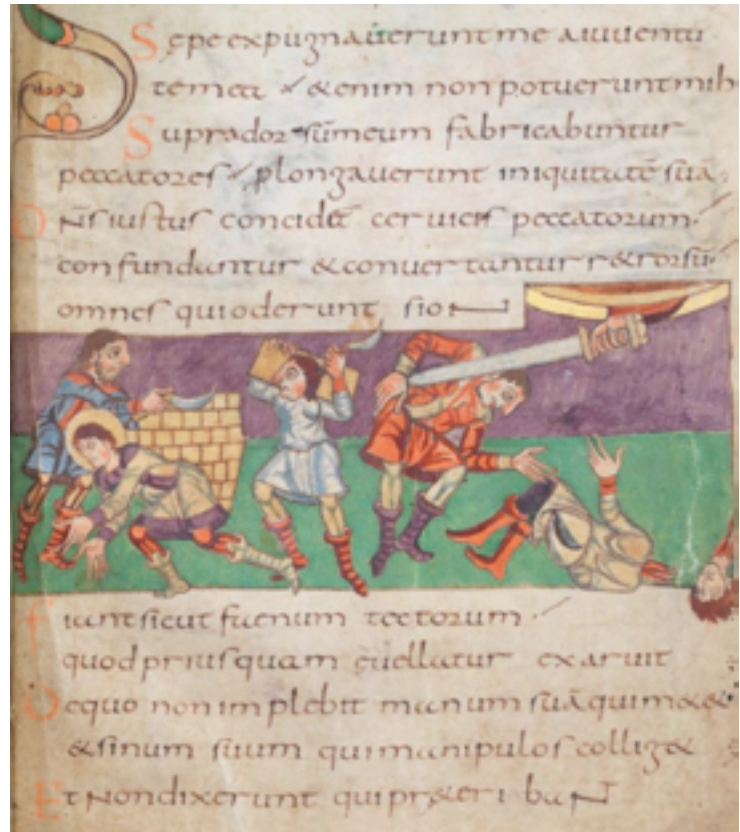 Sepe expugnaverunt me a iuventu
te mea & enim non potuerunt mih
Supra dorsū meum fabricabuntur
peccatores plongaverunt iniquitatē suā
Dn̄s iustus concidet cervices peccatorum
confundantur & convertantur r&rorsū
omnes qui oderunt sion
Fiant sicut faenum tectorum
quod priusquam evellatur exaruit
De quo non implebit manum suā qui m&&
& sinum suum qui manipulos collig&
Et non dixerunt qui pr&eriban